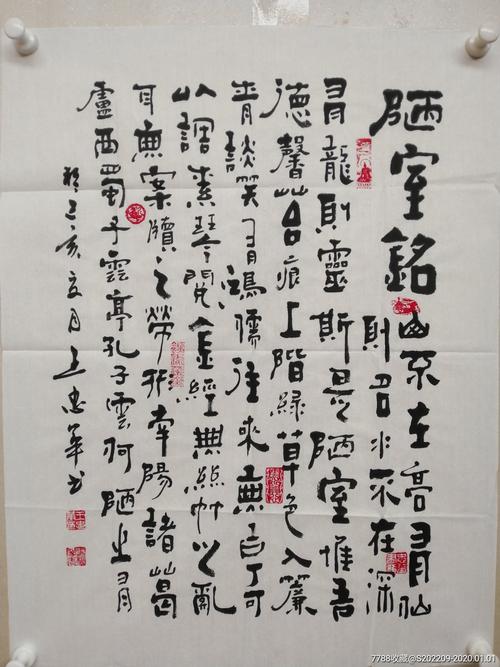 陋室銘山不在高有仙
則名水不在深
有龍則靈斯是陋室惟吾
德馨苔痕上階綠草色入簾
青談笑有鴻儒往來無白丁可
以調素琴閱金經無絲竹以亂
耳無案牘之勞形南陽諸葛
廬西蜀子雲亭孔子雲何陋之有
於己亥夏月王忠華书
7788收藏@S202209-2020.01.01